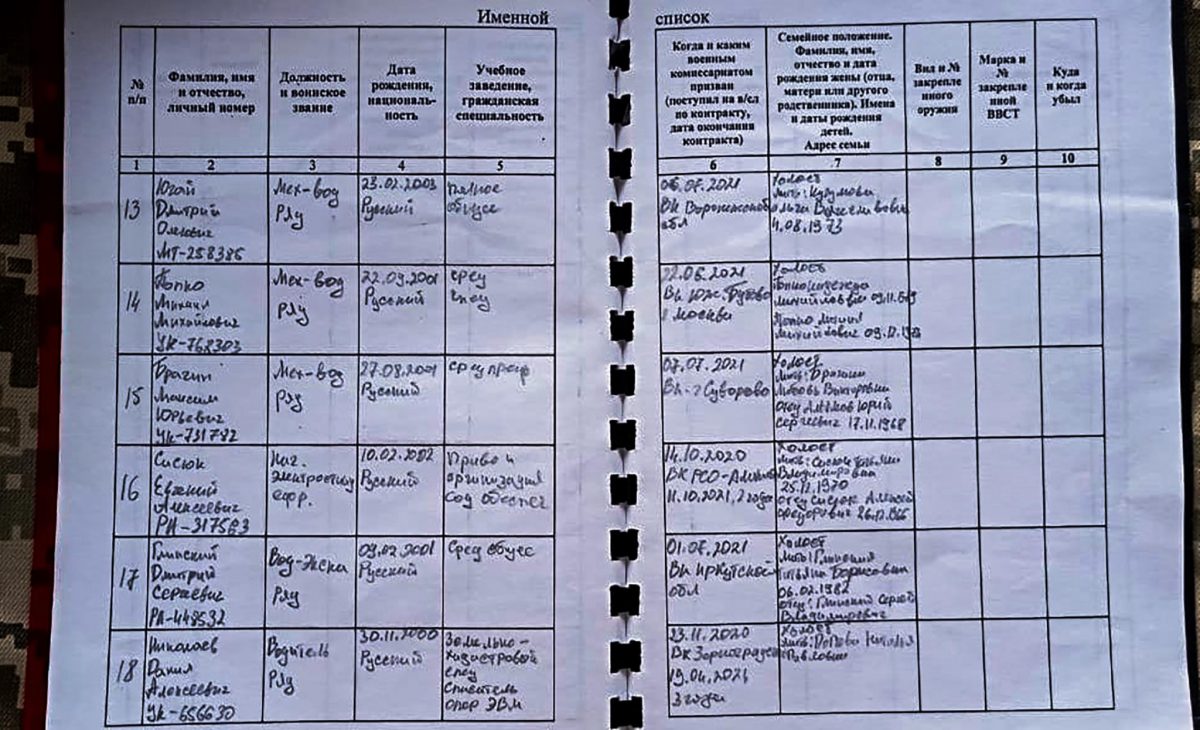 Именной список
№
п/п
Фамилия, имя
и отчество,
личный номер
Должность
и воинское
звание
Дата
рождения,
националь-
ность
Учебное
заведение,
гражданская
специальность
Когда и каким
военным
комиссариатом
призван
(поступил на в/сл
по контракту,
дата окончания
контракта)
Семейное положение.
Фамилия, имя,
отчество и дата
рождения жены (отца,
матери или другого
родственника). Имена
и даты рождения
детей.
Адрес семьи
Вид и №
закрепле
нного
оружия
Марка и
№
закрепле
нной
ВВСТ
Куда
и когда
убыл
1 2 3 4 5 6 7 8 9 10
13
Югай
Дмитрий
Олегович
МТ-258385
Мех-вод
Ряд
23.02.2003
Русский
06.07.2021
ВК Воронежской
обл
Холост
4.08.1973
14
Попко
Михаил
Михайлович
УК-768303
Мех-вод
Ряд
22.09.2001
Русский
сред
спец
22.06.2021
ВК Юж. Бутово
г Москвы
Холост
15
Брагин
Максим
Юрьевич
УК-731782
Мех-вод
Ряд
27.08.2001
Русский
сред проф
07.07.2021
ВК г Суворово
Холост
мать: Брагина
Любовь Викторовна
отец Юрий
Сергеевич 17.11.1968
16
Сисюк
Евгений
Алексеевич
РА-317563
Нач.
электростанц
ефр.
10.02.2002
Русский
Право и
организация
соц обеспеч
14.10.2020
ВК РСО-Алания
11.10.2021, 2 года
Холост
мать: Сисюк
Владимировна
25.12.1970
отец Сисюк Алексей
17
Глинский
Дмитрий
Сергеевич
РА-448532
Вод-Экски
Ряд
09.02.2001
Русский
Сред общее
01.07.2021
ВК Иркутской
обл
Холост
мать: Глинская
Татьяна Борисовна
06.02.1982
отец: Глинский Сергей
Владимирович
18
Николаев
Данил
Алексеевич
УК-656630
Водитель
Ряд
30.11.2000
Русский
Земельно-
кадастровой
опер ЭВМ
23.11.2020
19.04.2021
3 года
Холост
мать: Попова
Павловна